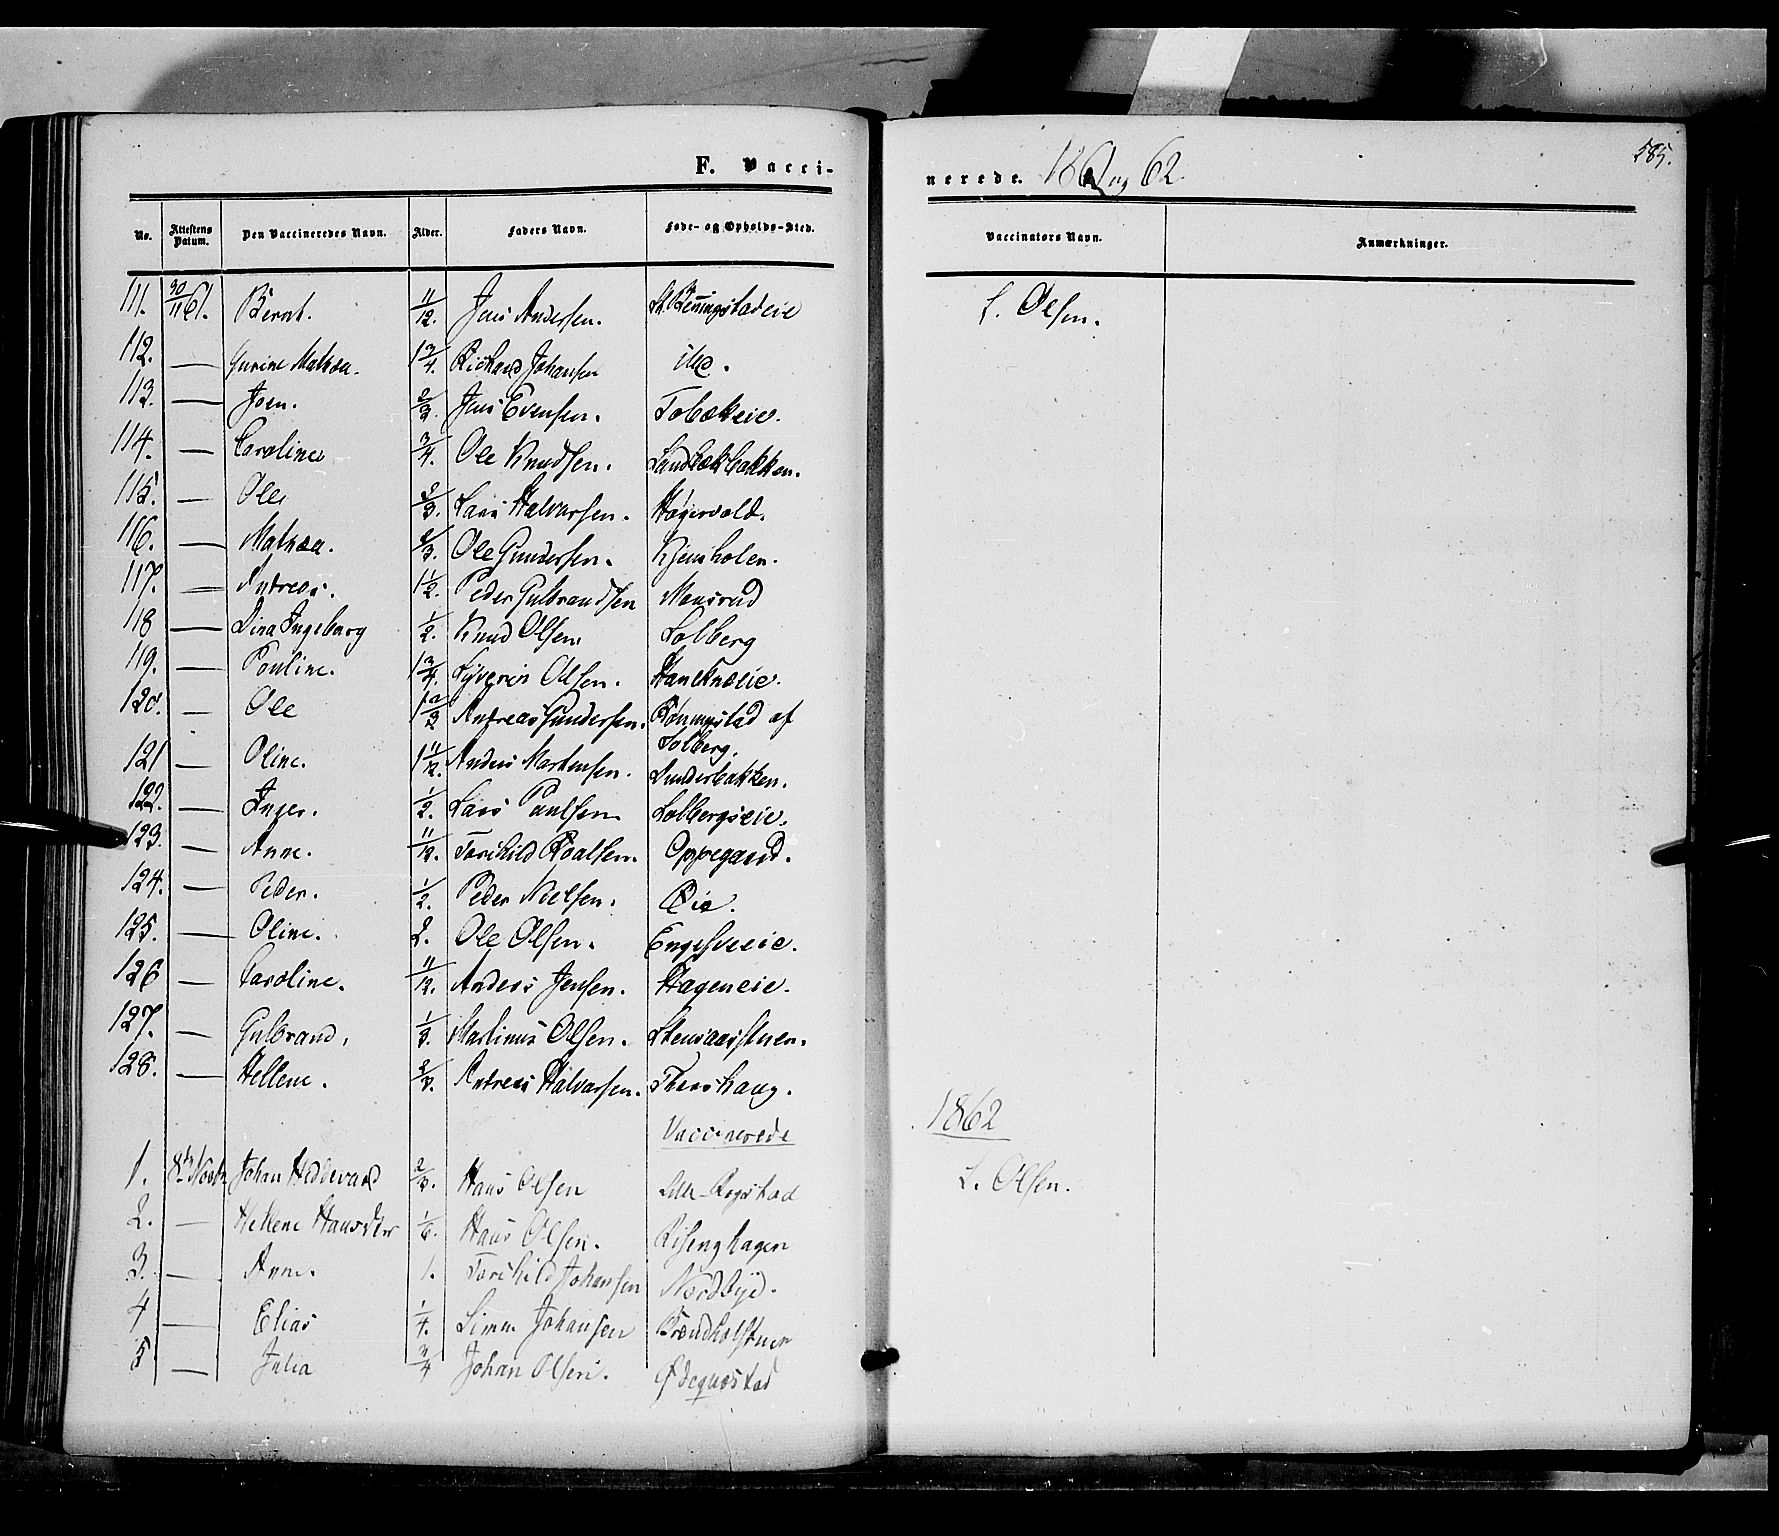 F. Vacci-
nerede. 1861 og 62.
585.
No. Attestens Datum. Den Vaccineredes Navn. Alder. Faders Navn. Føde- og Opholds-Sted. Vaccinators Navn. Anmærkninger.
111. 30/11 61. Bernt. 11/12. Jens Andersen. St. Benningstadeie L. Olsen.
112. — Gurine Mathea. 1 3/4. Richard Johansen ibid.
113. — Joen. 2/3. Jens Evensen. Tobækeie.
114. — Caroline 3/4. Ole Knudsen. Sandbækbakken.
115. — Ole 2/3. Lars Halvorsen. Hagervold.
116. — Mathea. 2/3. Ole Gundersen. Kjensholen.
117. — Andreas. 1 1/2. Peder Gulbrandsen Monsrud
118 — Dina Ingeborg 1/2. Knud Olsen. Solberg
119. — Pauline. 1 3/4. Syverin Olsen.
120. — Ole 1 2/3 Andreas Gundersen. Rønningstad af
Solberg.
121 — Oline. 1 11/12. Anders Mortensen. Sunderbakken.
122. — Inger. 1/2. Lars Paulsen Solbergseie.
123. — Anne. 11/12. Torchild Roalsen. Oppegaard.
124. — Peder. 1/2. Peder Nielsen. Øie.
125. — Oline. 2. Ole Olsen. Engelsveeie.
126 — Caroline. 11/12. Anders Jensen. Hageneie.
127. — Gulbrand. 1/3. Martinus Olsen. Stensaasstuen.
128. — Hellene. 2/3. Andreas Halvorsen. Thorshaug.
Vaccinerede 1862
1. 8de Novbr Johan Hedevard 2/3. Hans Olsen Lille-Rogstad L. Olsen.
2. — Hellene Hansdtr 1/6. Hans Olsen. Risenghagen
3. — Anne. 1. Torchild Johansen Nordbye.
4 — Elias 1/4. Simen Johansen Brændholstuen
5 — Julia 3/4 Johan Olsen. Ødegaastad